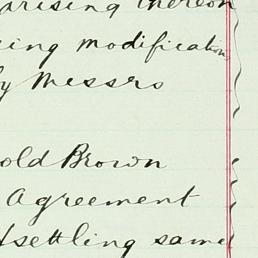 arising thereon
ing modification
by Messrs
old Brown
Agreement
settling same